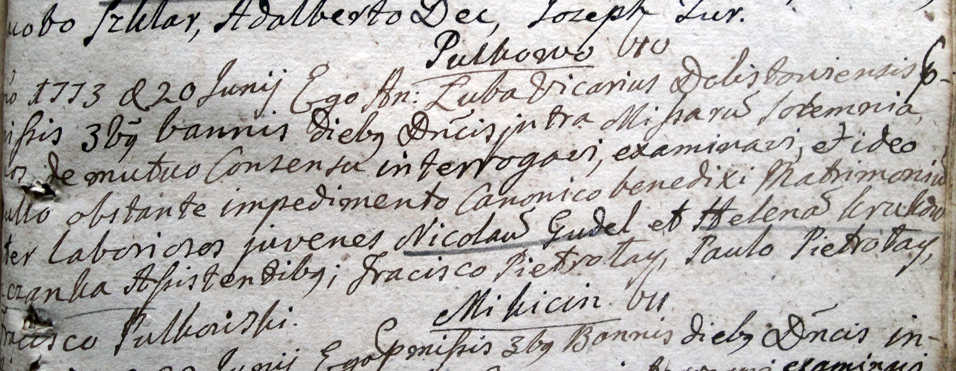 cobo Szklar, Adalberto Dec, Joseph Zur.
Pulkowo
1773 d 20 Junij Ego An: Zuba Vicarius Dolistoviensis p-
missis 3bq bannis dieby Dñcis jntra Missarū solemnia,
de mutuo Consensu interrogavi, examinavi, et ideo
nullo obstante impedimento Canonico benedixi Matrimoniū
ter laboriosos juvenes Nicolaū Gudel et Helenā Krukow
czanka Assistentiby; Fracisco Pietrotay, Paulo Pietrotay,
Fracisco Pulkowski.
Mikicin
Junij Ego pmissis 3bq Bannis dieby Dñcis in-
examinavi